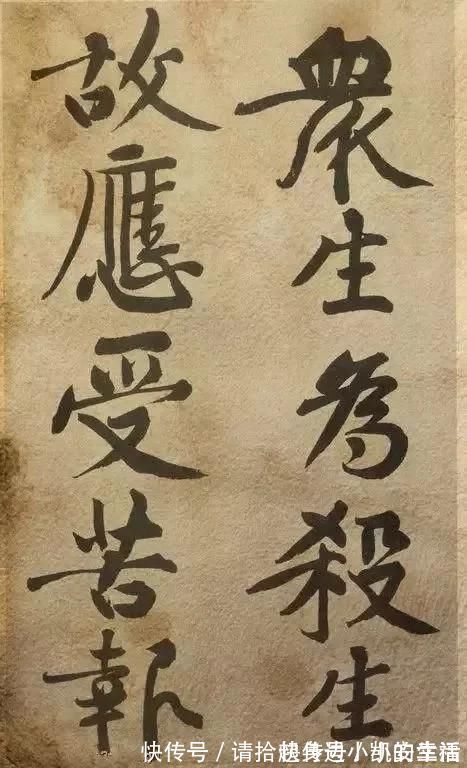 眾生為殺生
故應受苦報
快传号/请拾起身边小小的幸福